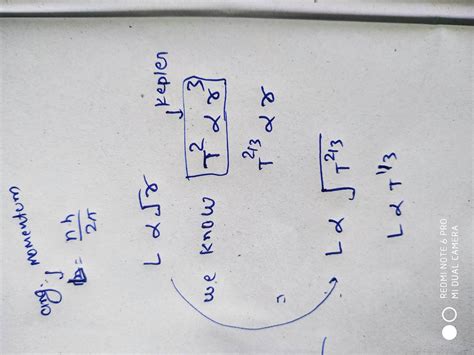 ang. momentum
= nh/2π
L ∝ √r
we know T² ∝ r³ Kepler
T^2/3 ∝ r
= L ∝ √T^2/3
L ∝ T^1/3
REDMI NOTE 6 PRO
MI DUAL CAMERA